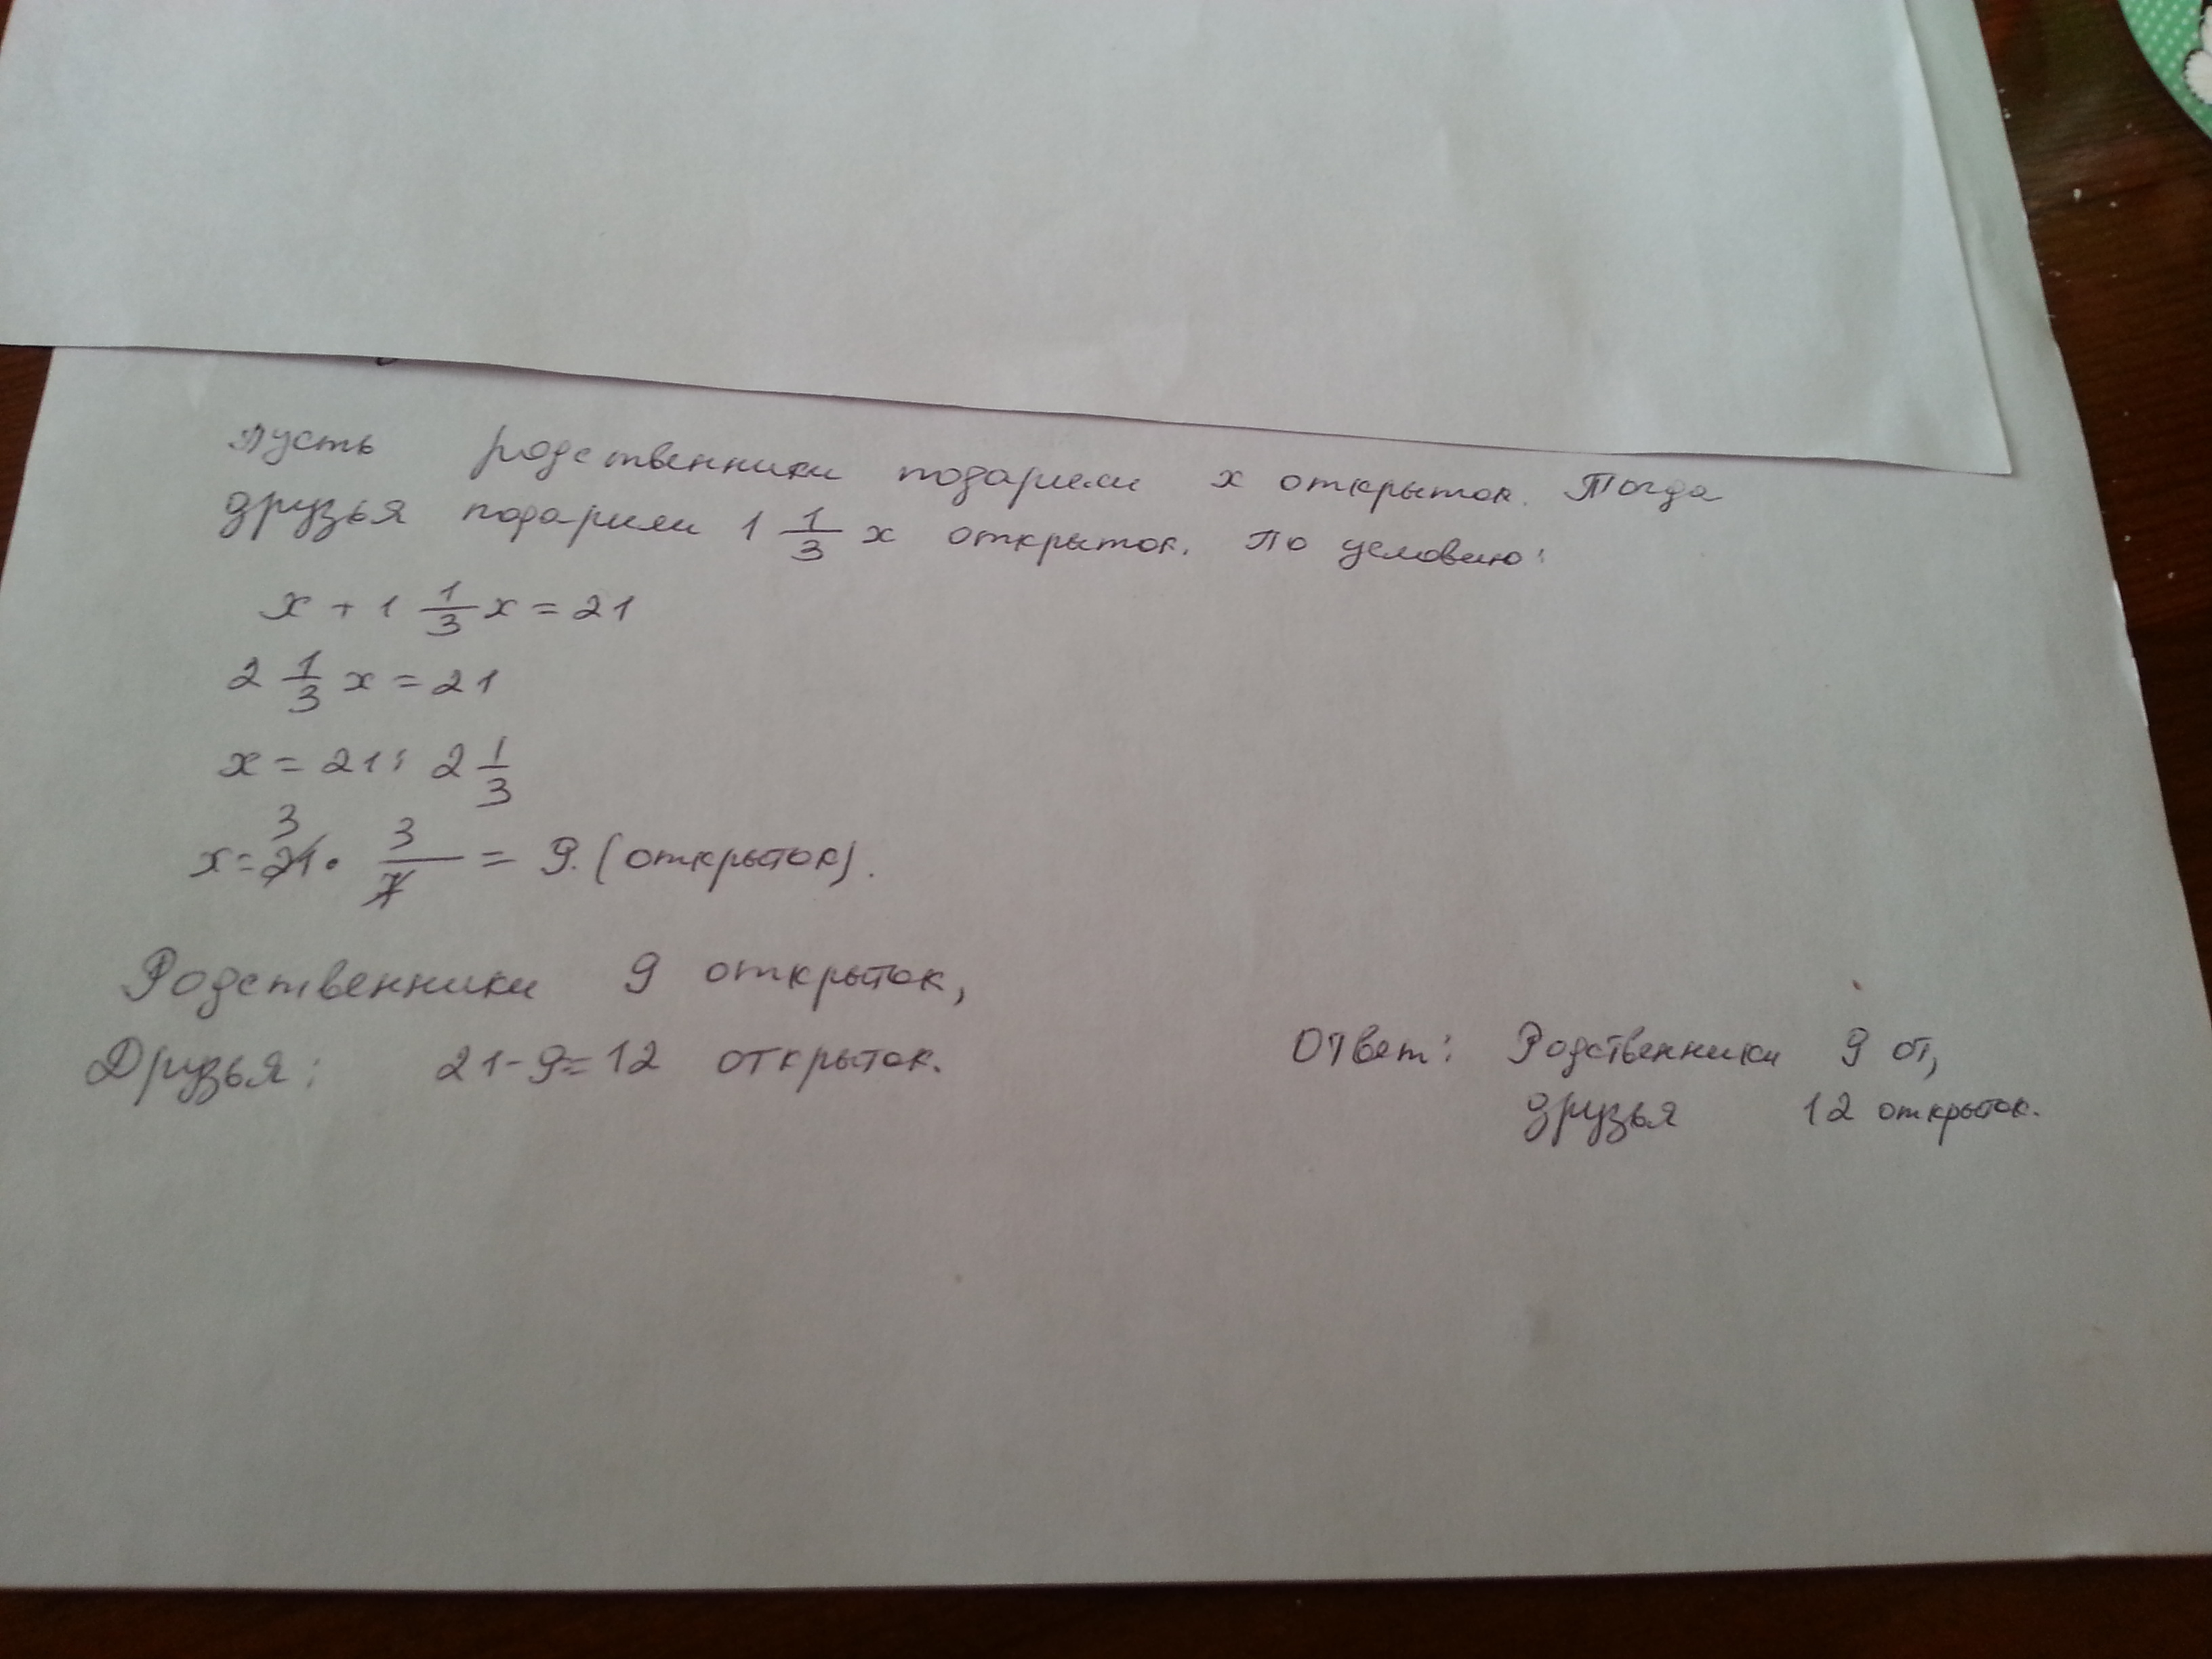 Пусть родственники подарили х открыток. Тогда
друзья подарили 1 1/3 х открыток. По условию:
х + 1 1/3 х = 21
2 1/3 х = 21
х = 21 : 2 1/3
3
х = 21 · 3/7 = 9. (открыток).
Родственники 9 открыток,
Друзья: 21-9=12 открыток.
Ответ: Родственники 9 от,
друзья 12 открыток.